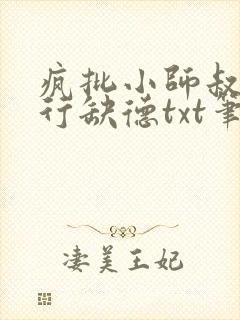 疯批小師叔
行缺德txt筆
凄美王妃